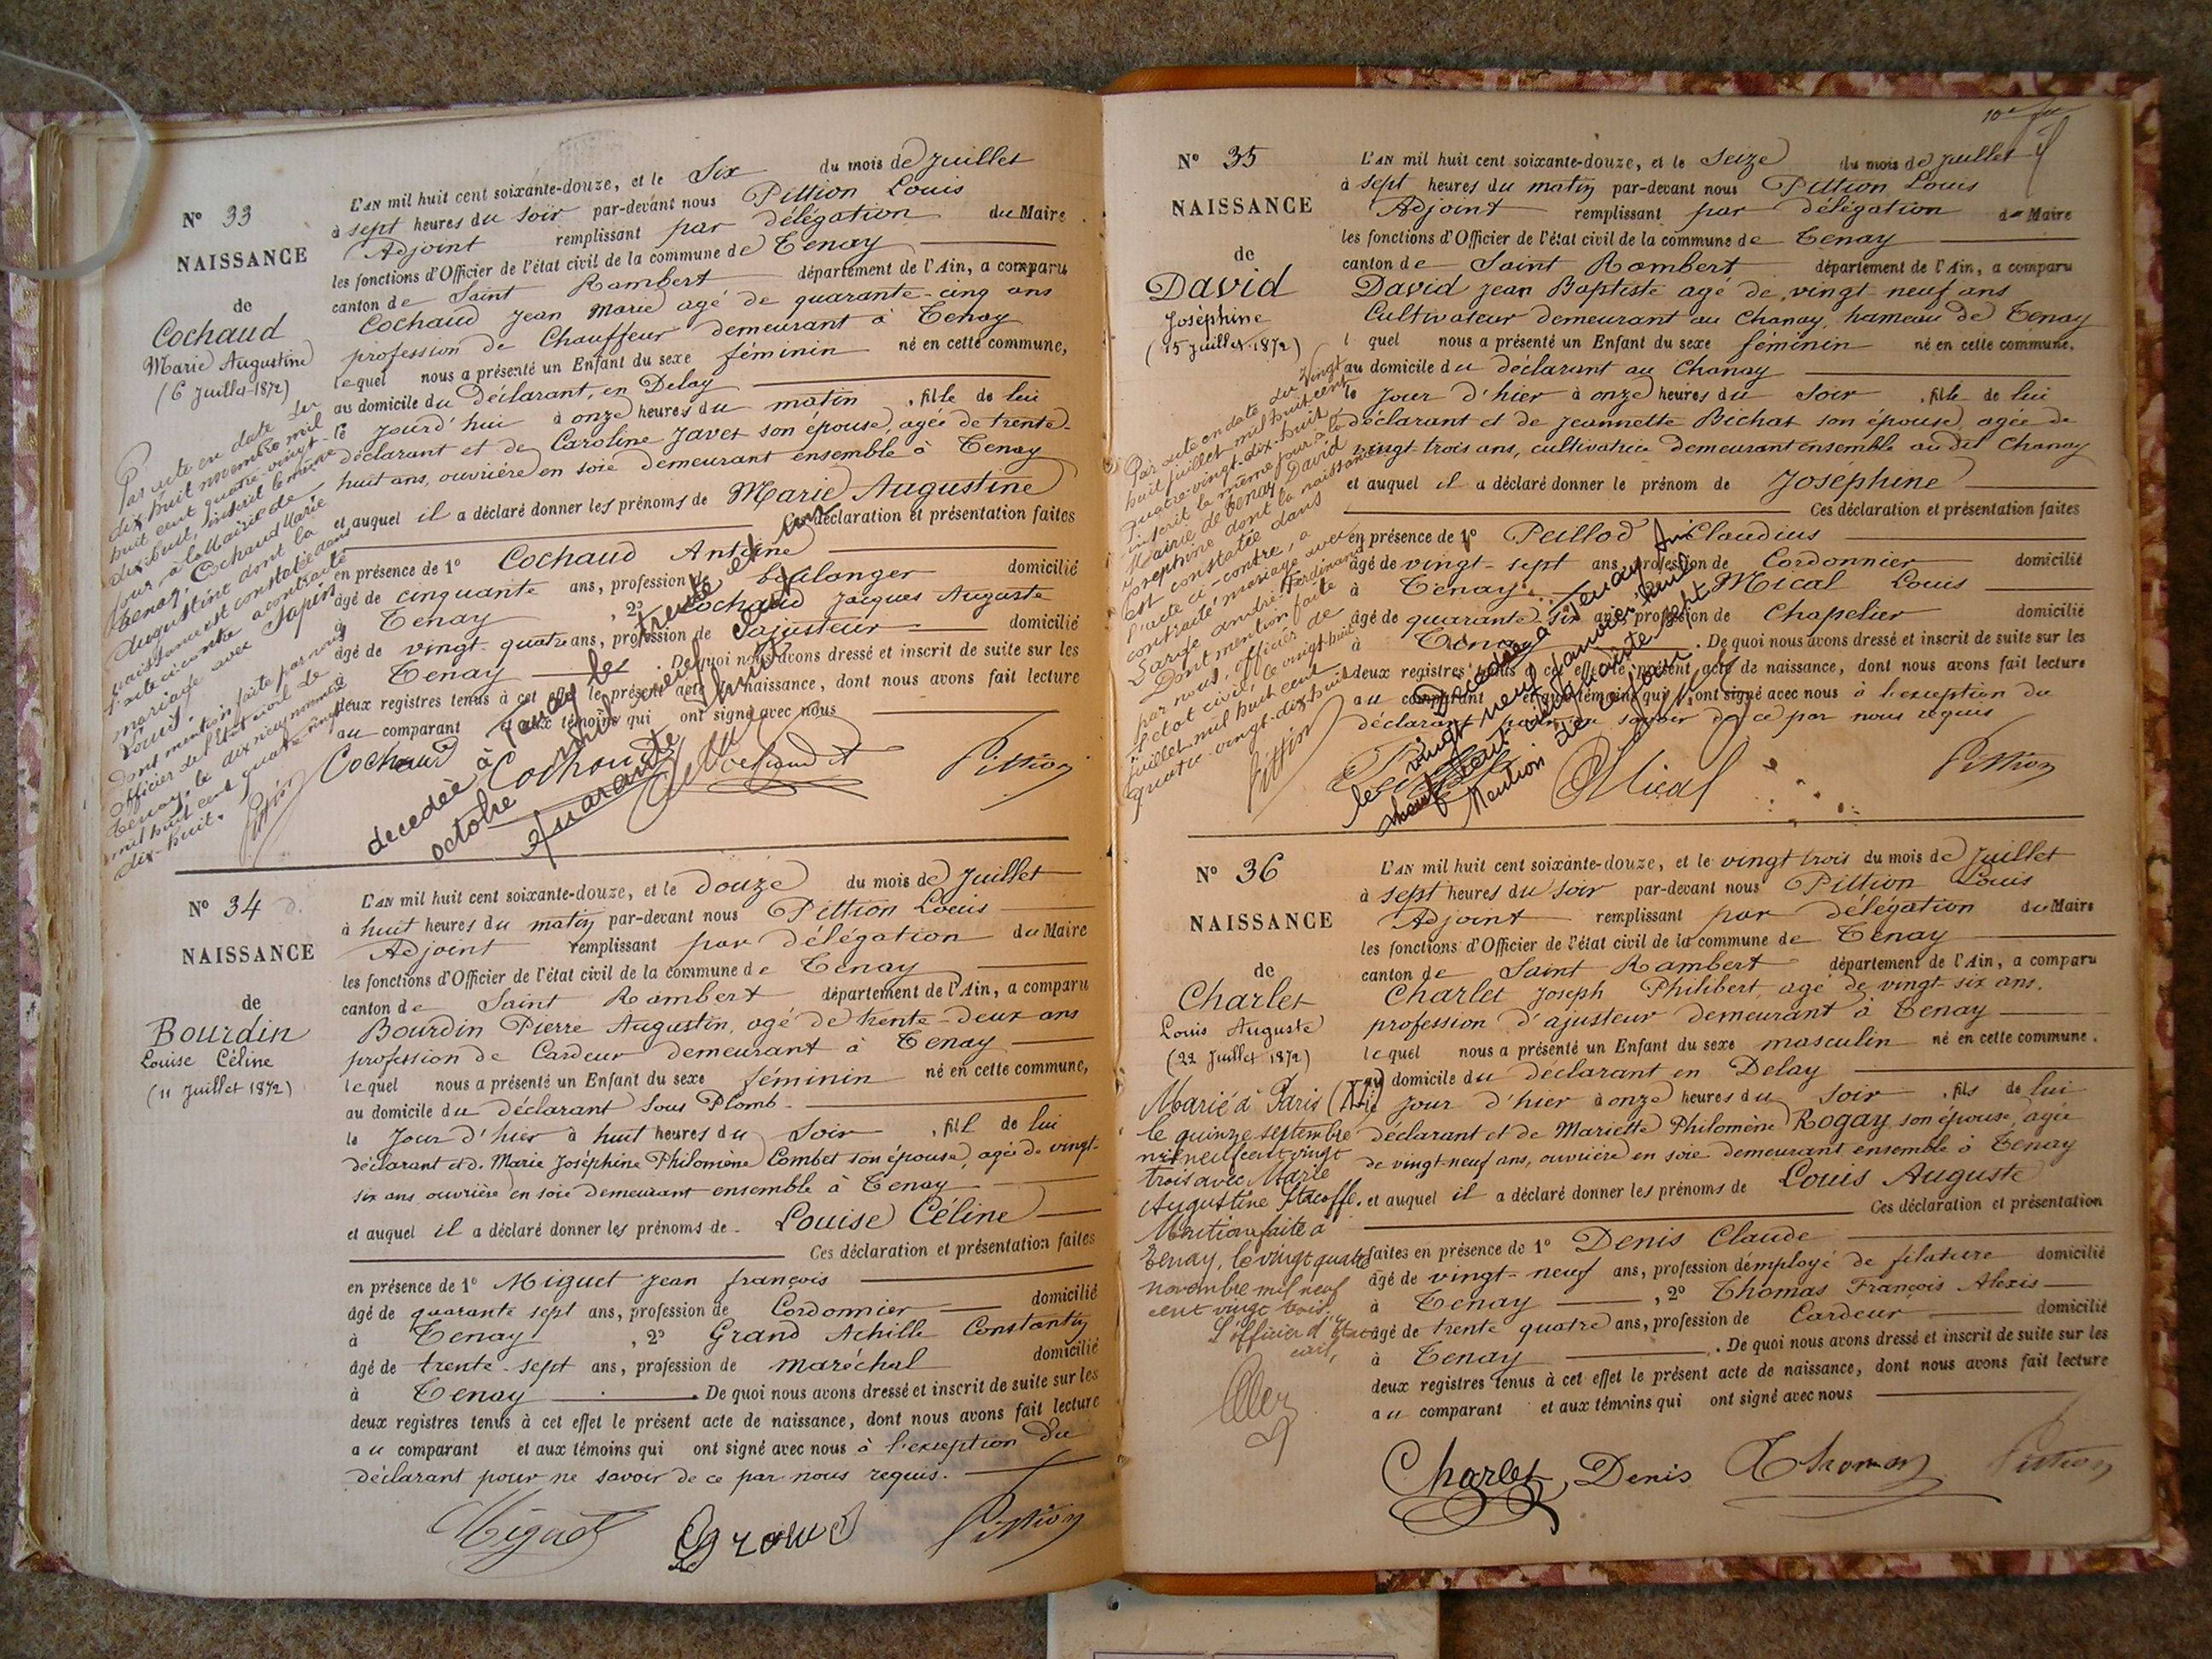 N° 33
NAISSANCE
de
Cochaud
Marie Augustine
(6 Juillet 1872)
Par acte en date du
dix huit novembre mil
huit cent quatre-vingt-
dix huit, inscrit le même
jour à la Mairie de
Tenay, Cochaud Marie
Augustine dont la
naissance est constatée dans
l'acte ci contre a contracté
mariage avec Sapin
Louis.
Dont mention faite par nous
officier de l'état civil de
Tenay, le dix neuf novembre
mil huit cent quatre vingt
dix-huit.
Pittion
L'AN mil huit cent soixante-douze, et le Six du mois de Juillet
à sept heures du soir par-devant nous Pittion Louis
Adjoint remplissant par délégation du Maire
les fonctions d'Officier de l'état civil de la commune de Tenay
canton de Saint Rambert département de l'Ain, a comparu
Cochaud Jean Marie agé de quarante-cinq ans
profession de Chauffeur demeurant à Tenay
lequel nous a présenté un Enfant du sexe féminin né en cette commune,
au domicile du déclarant, en Delay
le jourd'hui à onze heures du matin, fille de lui
déclarant et de Caroline Javet son épouse, agée de trente-
huit ans, ouvrière en soie demeurant ensemble à Tenay
et auquel il a déclaré donner les prénoms de Marie Augustine
Ces déclaration et présentation faites
en présence de 1° Cochaud Antoine
âgé de cinquante ans, profession de boulanger domicilié
à Tenay, 2° Cochaud Jacques Auguste
âgé de vingt-quatre ans, profession de ajusteur domicilié
à Tenay. De quoi nous avons dressé et inscrit de suite sur les
deux registres tenus à cet effet le présent acte de naissance, dont nous avons fait lecture
au comparant et aux témoins qui ont signé avec nous
decedée à Tenay le trente et un
octobre mil neuf cent
quarante huit
Cochaud Cochaud Cochaud A Pittion
N° 34
NAISSANCE
de
Bourdin
Louise Céline
(11 Juillet 1872)
L'AN mil huit cent soixante-douze, et le douze du mois de Juillet
à huit heures du matin par-devant nous Pittion Louis
Adjoint remplissant par délégation du Maire
les fonctions d'Officier de l'état civil de la commune de Tenay
canton de Saint Rambert département de l'Ain, a comparu
Bourdin Pierre Augustin, agé de trente-deux ans
profession de Cardeur demeurant à Tenay
lequel nous a présenté un Enfant du sexe féminin né en cette commune,
au domicile du déclarant Sous Plomb
le jour d'hier à huit heures du soir, fill de lui
déclarant et d. Marie Joséphine Philomène Combet son épouse, agée de vingt-
six ans ouvrière en soie demeurant ensemble à Tenay
et auquel il a déclaré donner les prénoms de Louise Céline
Ces déclaration et présentation faites
en présence de 1° Miguet Jean françois
âgé de quarante sept ans, profession de Cordonnier domicilié
à Tenay, 2° Grand Achille Constantin
âgé de trente-sept ans, profession de maréchal domicilié
à Tenay. De quoi nous avons dressé et inscrit de suite sur les
deux registres tenus à cet effet le présent acte de naissance, dont nous avons fait lecture
au comparant et aux témoins qui ont signé avec nous à l'exception du
déclarant pour ne savoir de ce par nous requis.
Miguet Grand Pittion
N° 35
NAISSANCE
de
David
Joséphine
(15 Juillet 1872)
Par acte en date du vingt
huit juillet mil huit cent
quatre-vingt-dix-huit
inscrit le même jour à la
Mairie de Tenay David
Josephine dont la naissance
est constatée dans
l'acte ci-contre, a
contracté mariage avec
Large André Ferdinand
Dont mention faite
par nous, officier de
l'état civil, le vingt huit
juillet mil huit cent
quatre-vingt-dix-huit
Pittion
L'AN mil huit cent soixante-douze, et le Seize du mois de Juillet
à sept heures du matin par-devant nous Pittion Louis
Adjoint remplissant par délégation de Maire
les fonctions d'Officier de l'état civil de la commune de Tenay
canton de Saint Rambert département de l'Ain, a comparu
David Jean Baptiste agé de vingt-neuf ans
Cultivateur demeurant au Chanay, hameau de Tenay
l quel nous a présenté un Enfant du sexe féminin né en cette commune,
au domicile du déclarant au Chanay
le jour d'hier à onze heures du soir, fille de lui
déclarant et de Jeannette Bichat son épouse, agée de
vingt-trois ans, cultivatrice demeurant ensemble au dit Chanay
et auquel il a déclaré donner le prénom de Joséphine
Ces déclaration et présentation faites
en présence de 1° Paillod Claudius
âgé de vingt-sept ans profession de Cordonnier domicilié
à Tenay, 2° Mical Louis
âgé de quarante six ans profession de Chapelier domicilié
à Tenay. De quoi nous avons dressé et inscrit de suite sur les
deux registres tenus à cet effet le présent acte de naissance, dont nous avons fait lecture
au comparant et aux témoins qui ont signé avec nous à l'exception du
déclarant pour ne savoir de ce par nous requis
Décédée à Tenay (Ain)
le vingt neuf janvier mil
neuf cent cinquante sept.
Mention de ce jour
Mical Pittion
N° 36
NAISSANCE
de
Charlet
Louis Auguste
(22 Juillet 1872)
Marié à Paris
le quinze septembre
mil neuf cent vingt
trois avec Marie
Augustine
Mention faite à
Tenay, le vingt quatre
novembre mil neuf
cent vingt trois.
L'officier d'état
civil,
L'AN mil huit cent soixante-douze, et le vingt trois du mois de Juillet
à sept heures du soir par-devant nous Pittion Louis
Adjoint remplissant par délégation du Maire
les fonctions d'Officier de l'état civil de la commune de Tenay
canton de Saint Rambert département de l'Ain, a comparu
Charlet Joseph Philibert, agé de vingt-six ans,
profession d'ajusteur demeurant à Tenay
lequel nous a présenté un Enfant du sexe masculin né en cette commune,
au domicile du déclarant en Delay
le jour d'hier à onze heures du soir, fils de lui
déclarant et de Mariette Philomène Rogay son épouse, agée
de vingt-neuf ans, ouvrière en soie demeurant ensemble à Tenay
et auquel il a déclaré donner les prénoms de Louis Auguste
Ces déclaration et présentation
faites en présence de 1° Denis Claude
âgé de vingt-neuf ans, profession d'employé de filature domicilié
à Tenay, 2° Thomas François Alexis
âgé de trente quatre ans, profession de Cardeur domicilié
à Tenay. De quoi nous avons dressé et inscrit de suite sur les
deux registres tenus à cet effet le présent acte de naissance, dont nous avons fait lecture
au comparant et aux témoins qui ont signé avec nous
Charlet Denis Thomas Pittion